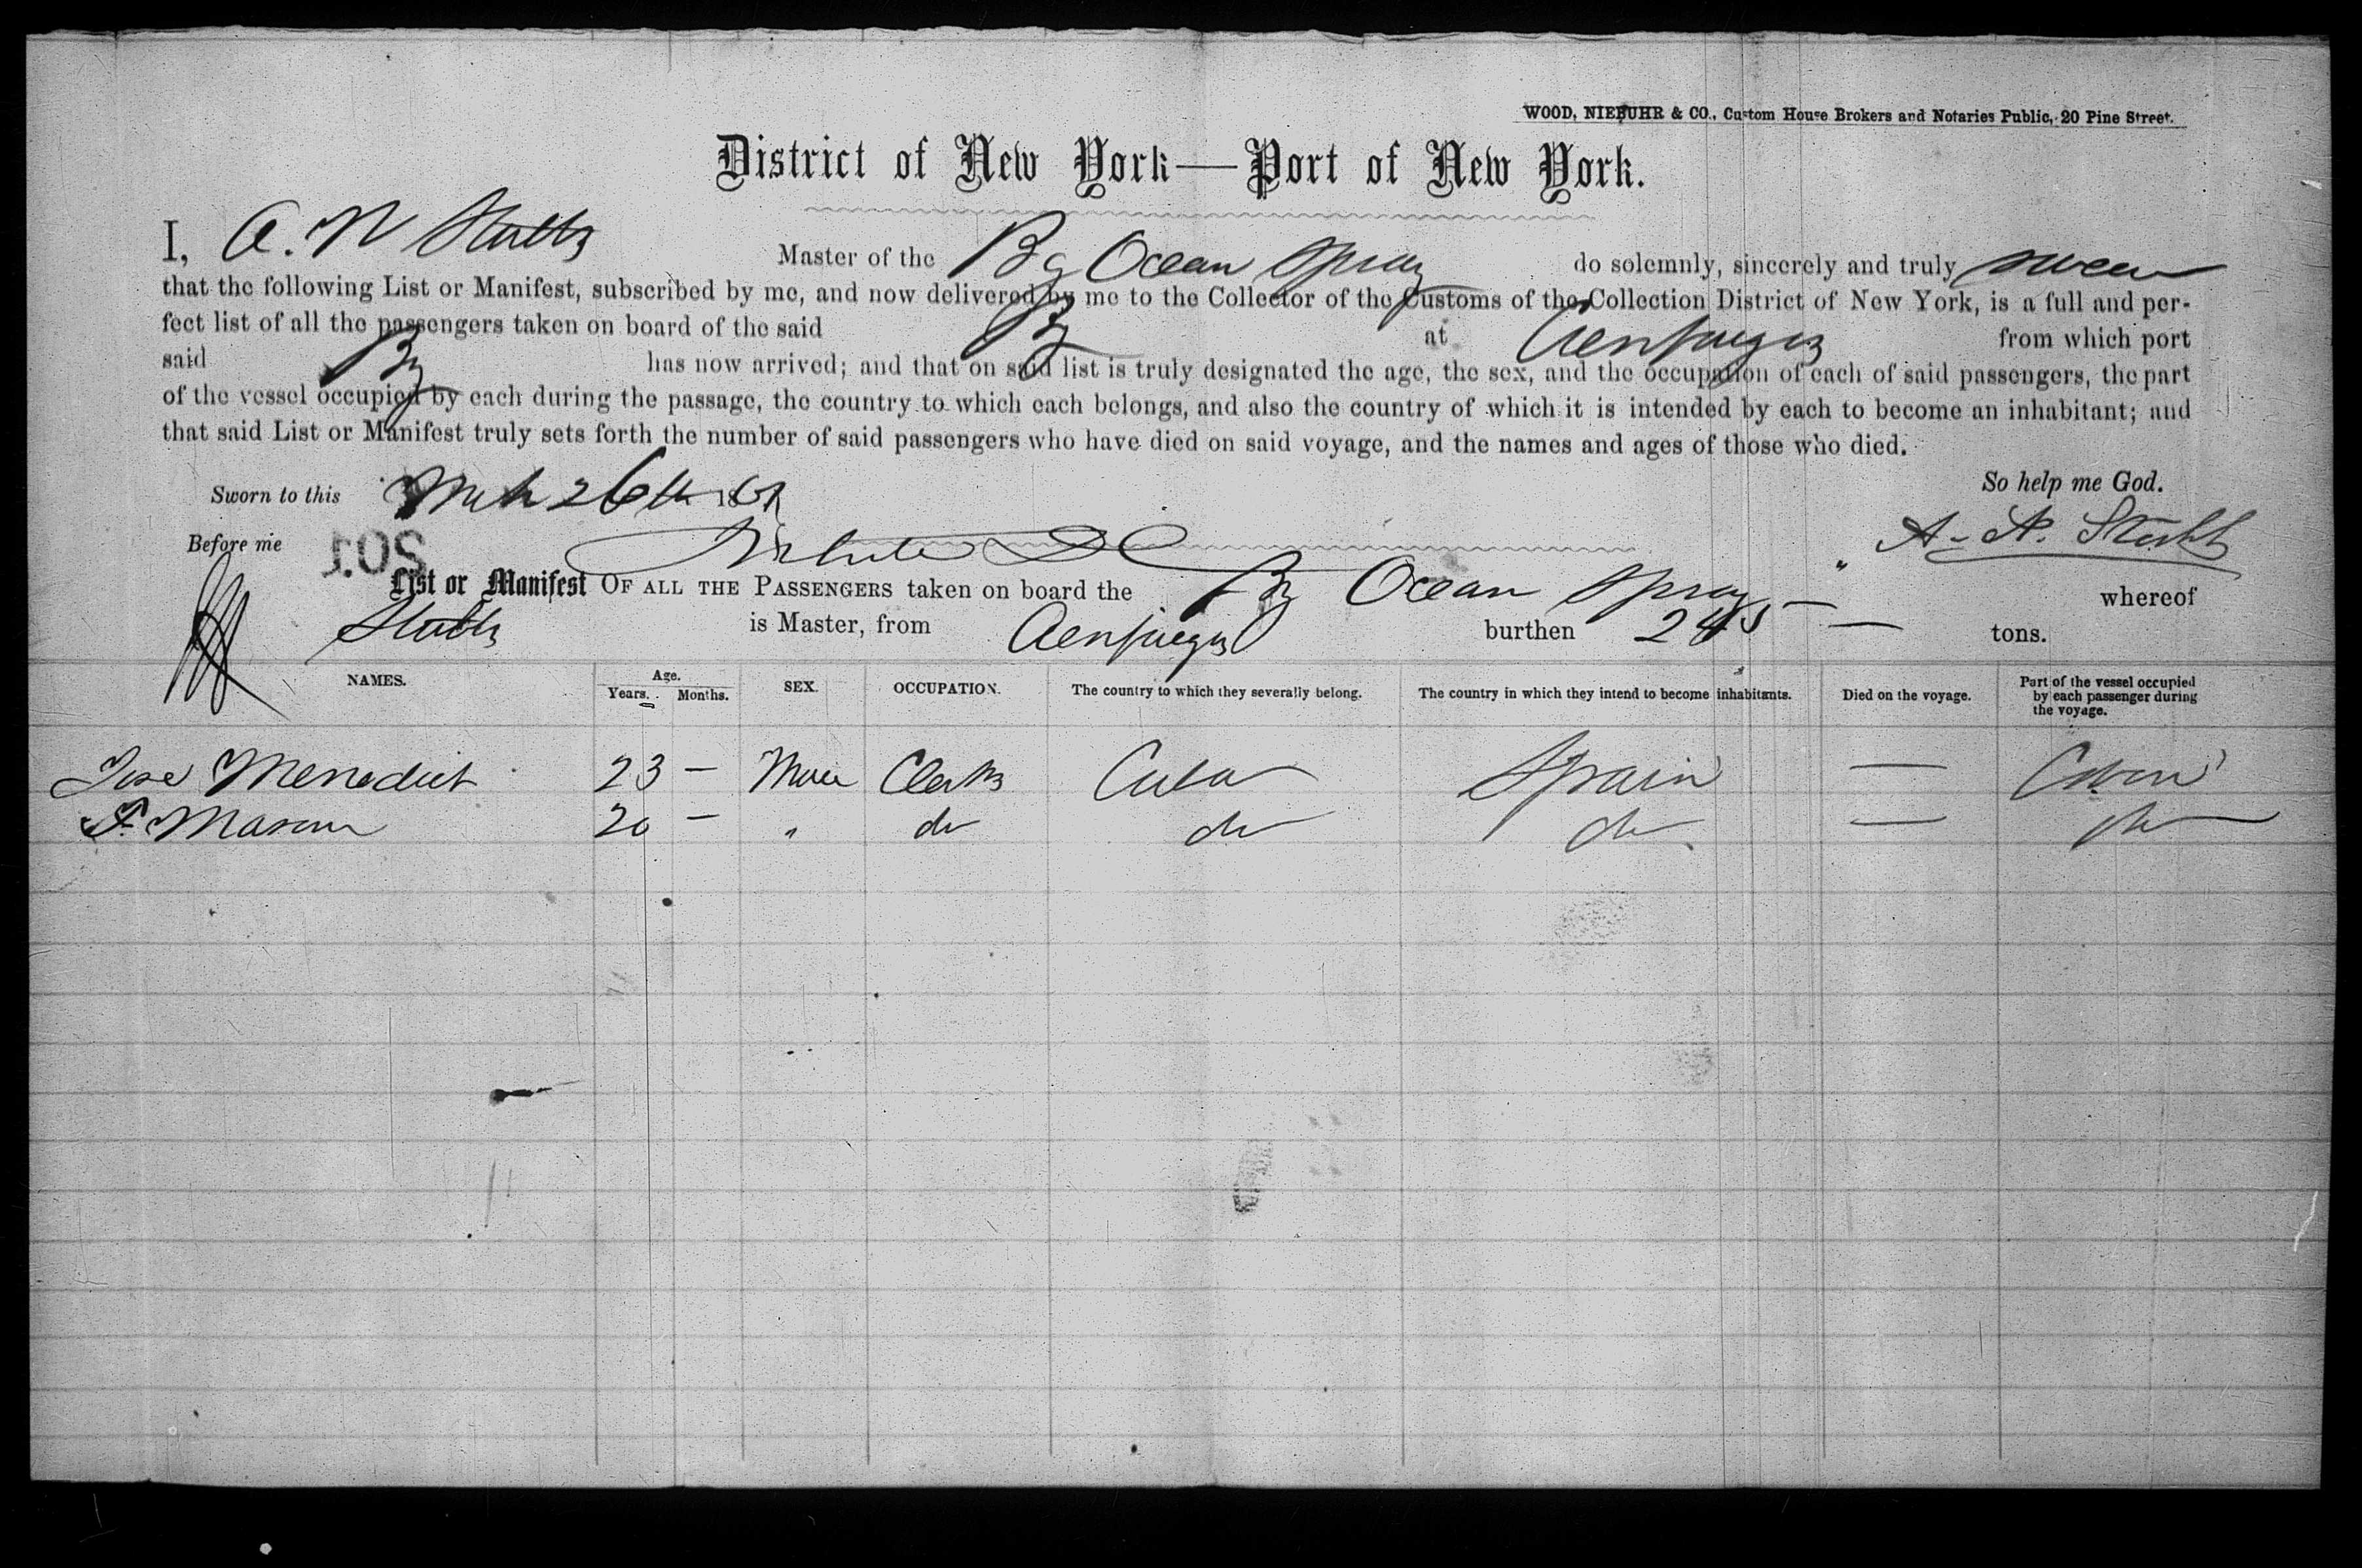 WOOD, NIEBUHR & CO., Custom House Brokers and Notaries Public, 20 Pine Street.
District of New York—Port of New York.
I, A. N Stubbs Master of the Bg Ocean Spray do solemnly, sincerely and truly swear
that the following List or Manifest, subscribed by me, and now delivered by me to the Collector of the Customs of the Collection District of New York, is a full and per-
fect list of all the passengers taken on board of the said Bg at Cienfuegos from which port
said Bg has now arrived; and that on said list is truly designated the age, the sex, and the occupation of each of said passengers, the part
of the vessel occupied by each during the passage, the country to which each belongs, and also the country of which it is intended by each to become an inhabitant; and
that said List or Manifest truly sets forth the number of said passengers who have died on said voyage, and the names and ages of those who died.
Sworn to this Mch 26th 186 So help me God.
Before me A. N. Stubbs
201
List or Manifest OF ALL THE PASSENGERS taken on board the Bg Ocean Spray — whereof
Stubbs is Master, from Cienfuegos burthen 245 — tons.
NAMES. Age. Years. Months. SEX. OCCUPATION. The country to which they severally belong. The country in which they intend to become inhabitants. Died on the voyage. Part of the vessel occupied by each passenger during the voyage.
Jose Menedict 23 — Male Clerks Cuba Spain — Cabin
20 — " do do do — do